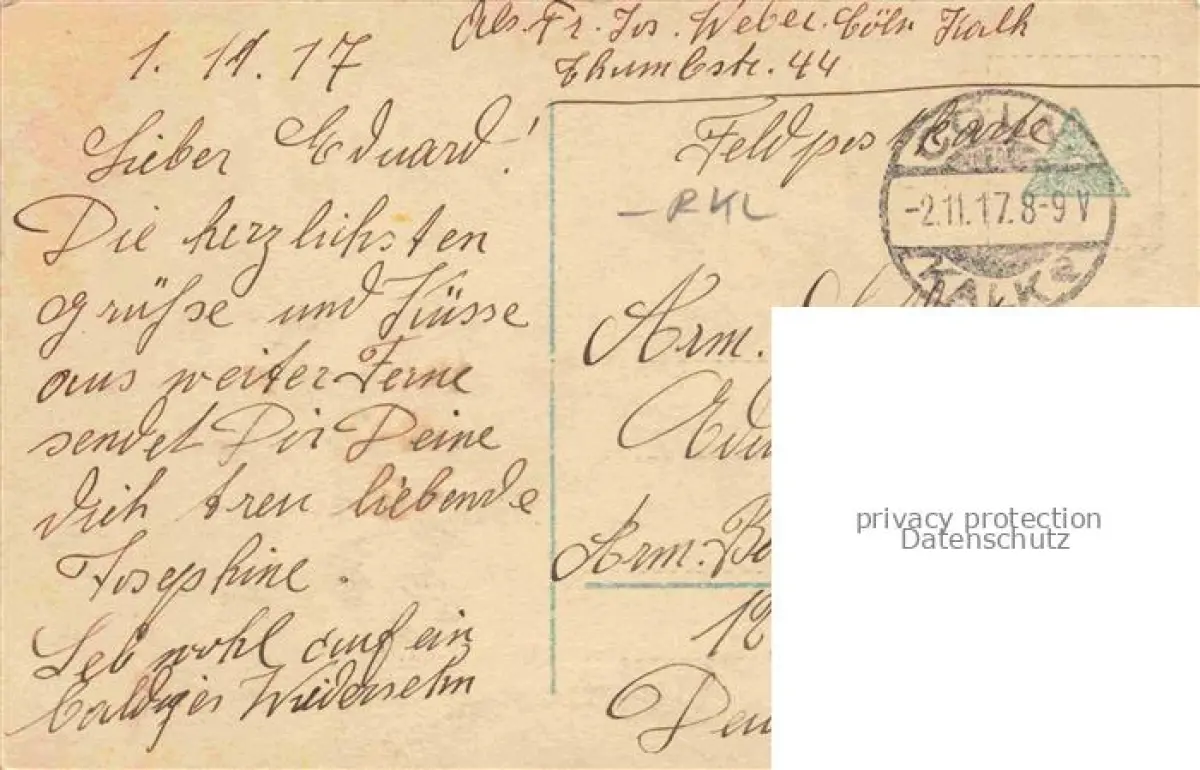 1. 11. 17
Abs. Fr. Jos. Weber. Cöln Kalk
Thumbstr. 44
Lieber Eduard!
Die herzlichsten
grüßse und Küsse
aus weiter Ferne
sendet Dir Deine
dich treu liebende
Josephine.
Leb wohl auf ein
baldiges Wiedersehn
Feldpostkarte
RKL
CÖLN
-2.11.17.8-9 V
KALK
Arm.
Edu
Arm. B
12
Deu
privacy protection
Datenschutz